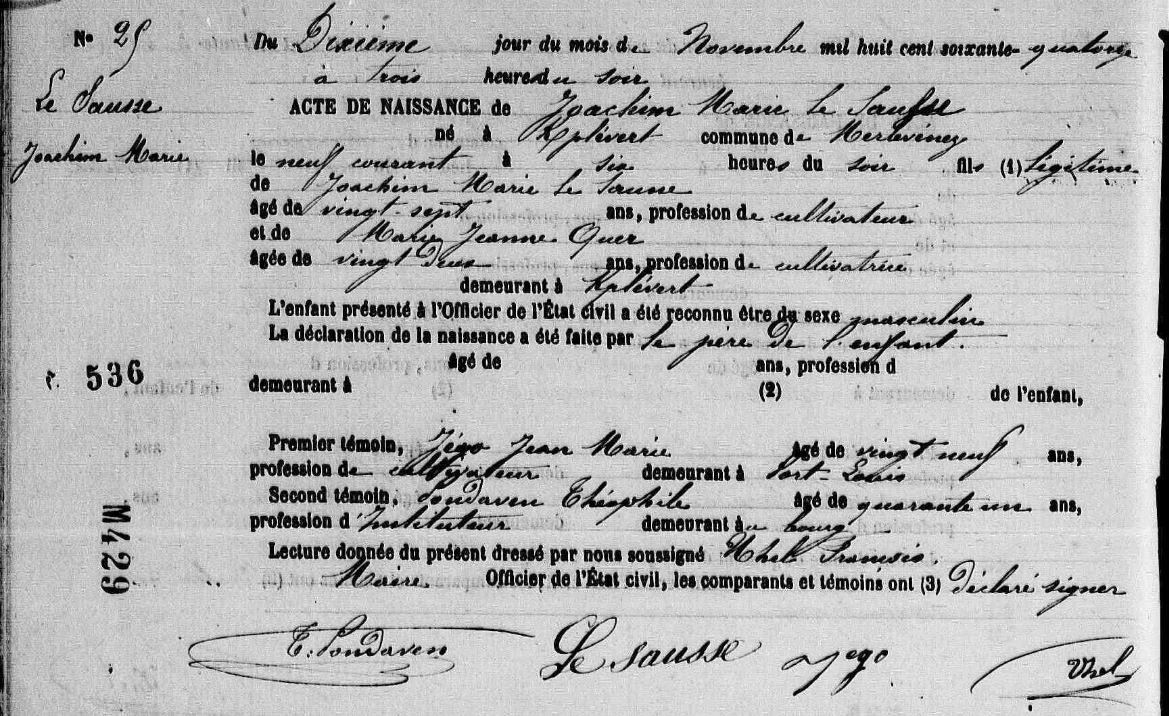 N° 25
Le Sausse
Joachim Marie
Du Dixième jour du mois de Novembre mil huit cent soixante-quatorze
à trois heures du soir
ACTE DE NAISSANCE de Joachim Marie le Sausse
né à Kplévert commune de Merlévenez
le neuf courant à six heures du soir fils (1) légitime
de Joachim Marie le Sausse
âgé de vingt-sept ans, profession de cultivateur
et de Marie Jeanne Quer
âgée de vingt deux ans, profession de cultivatrice
demeurant à Kplévert
L'enfant présenté à l'Officier de l'État civil a été reconnu être du sexe masculin
La déclaration de la naissance a été faite par le père de l'enfant.
âgé de ans, profession d
demeurant à (2) de l'enfant,
536
Premier témoin, Jégo Jean Marie âgé de vingt neuf ans,
profession de cultivateur demeurant à Port-Louis
Second témoin, Pondaven Théophile âgé de quarante un ans,
profession d'Instituteur demeurant au bourg
Lecture donnée du présent dressé par nous soussigné Uhel François.
Maire Officier de l'État civil, les comparants et témoins ont (3) déclaré signer
M429
T. Pondaven Le sausse Jego Uhel